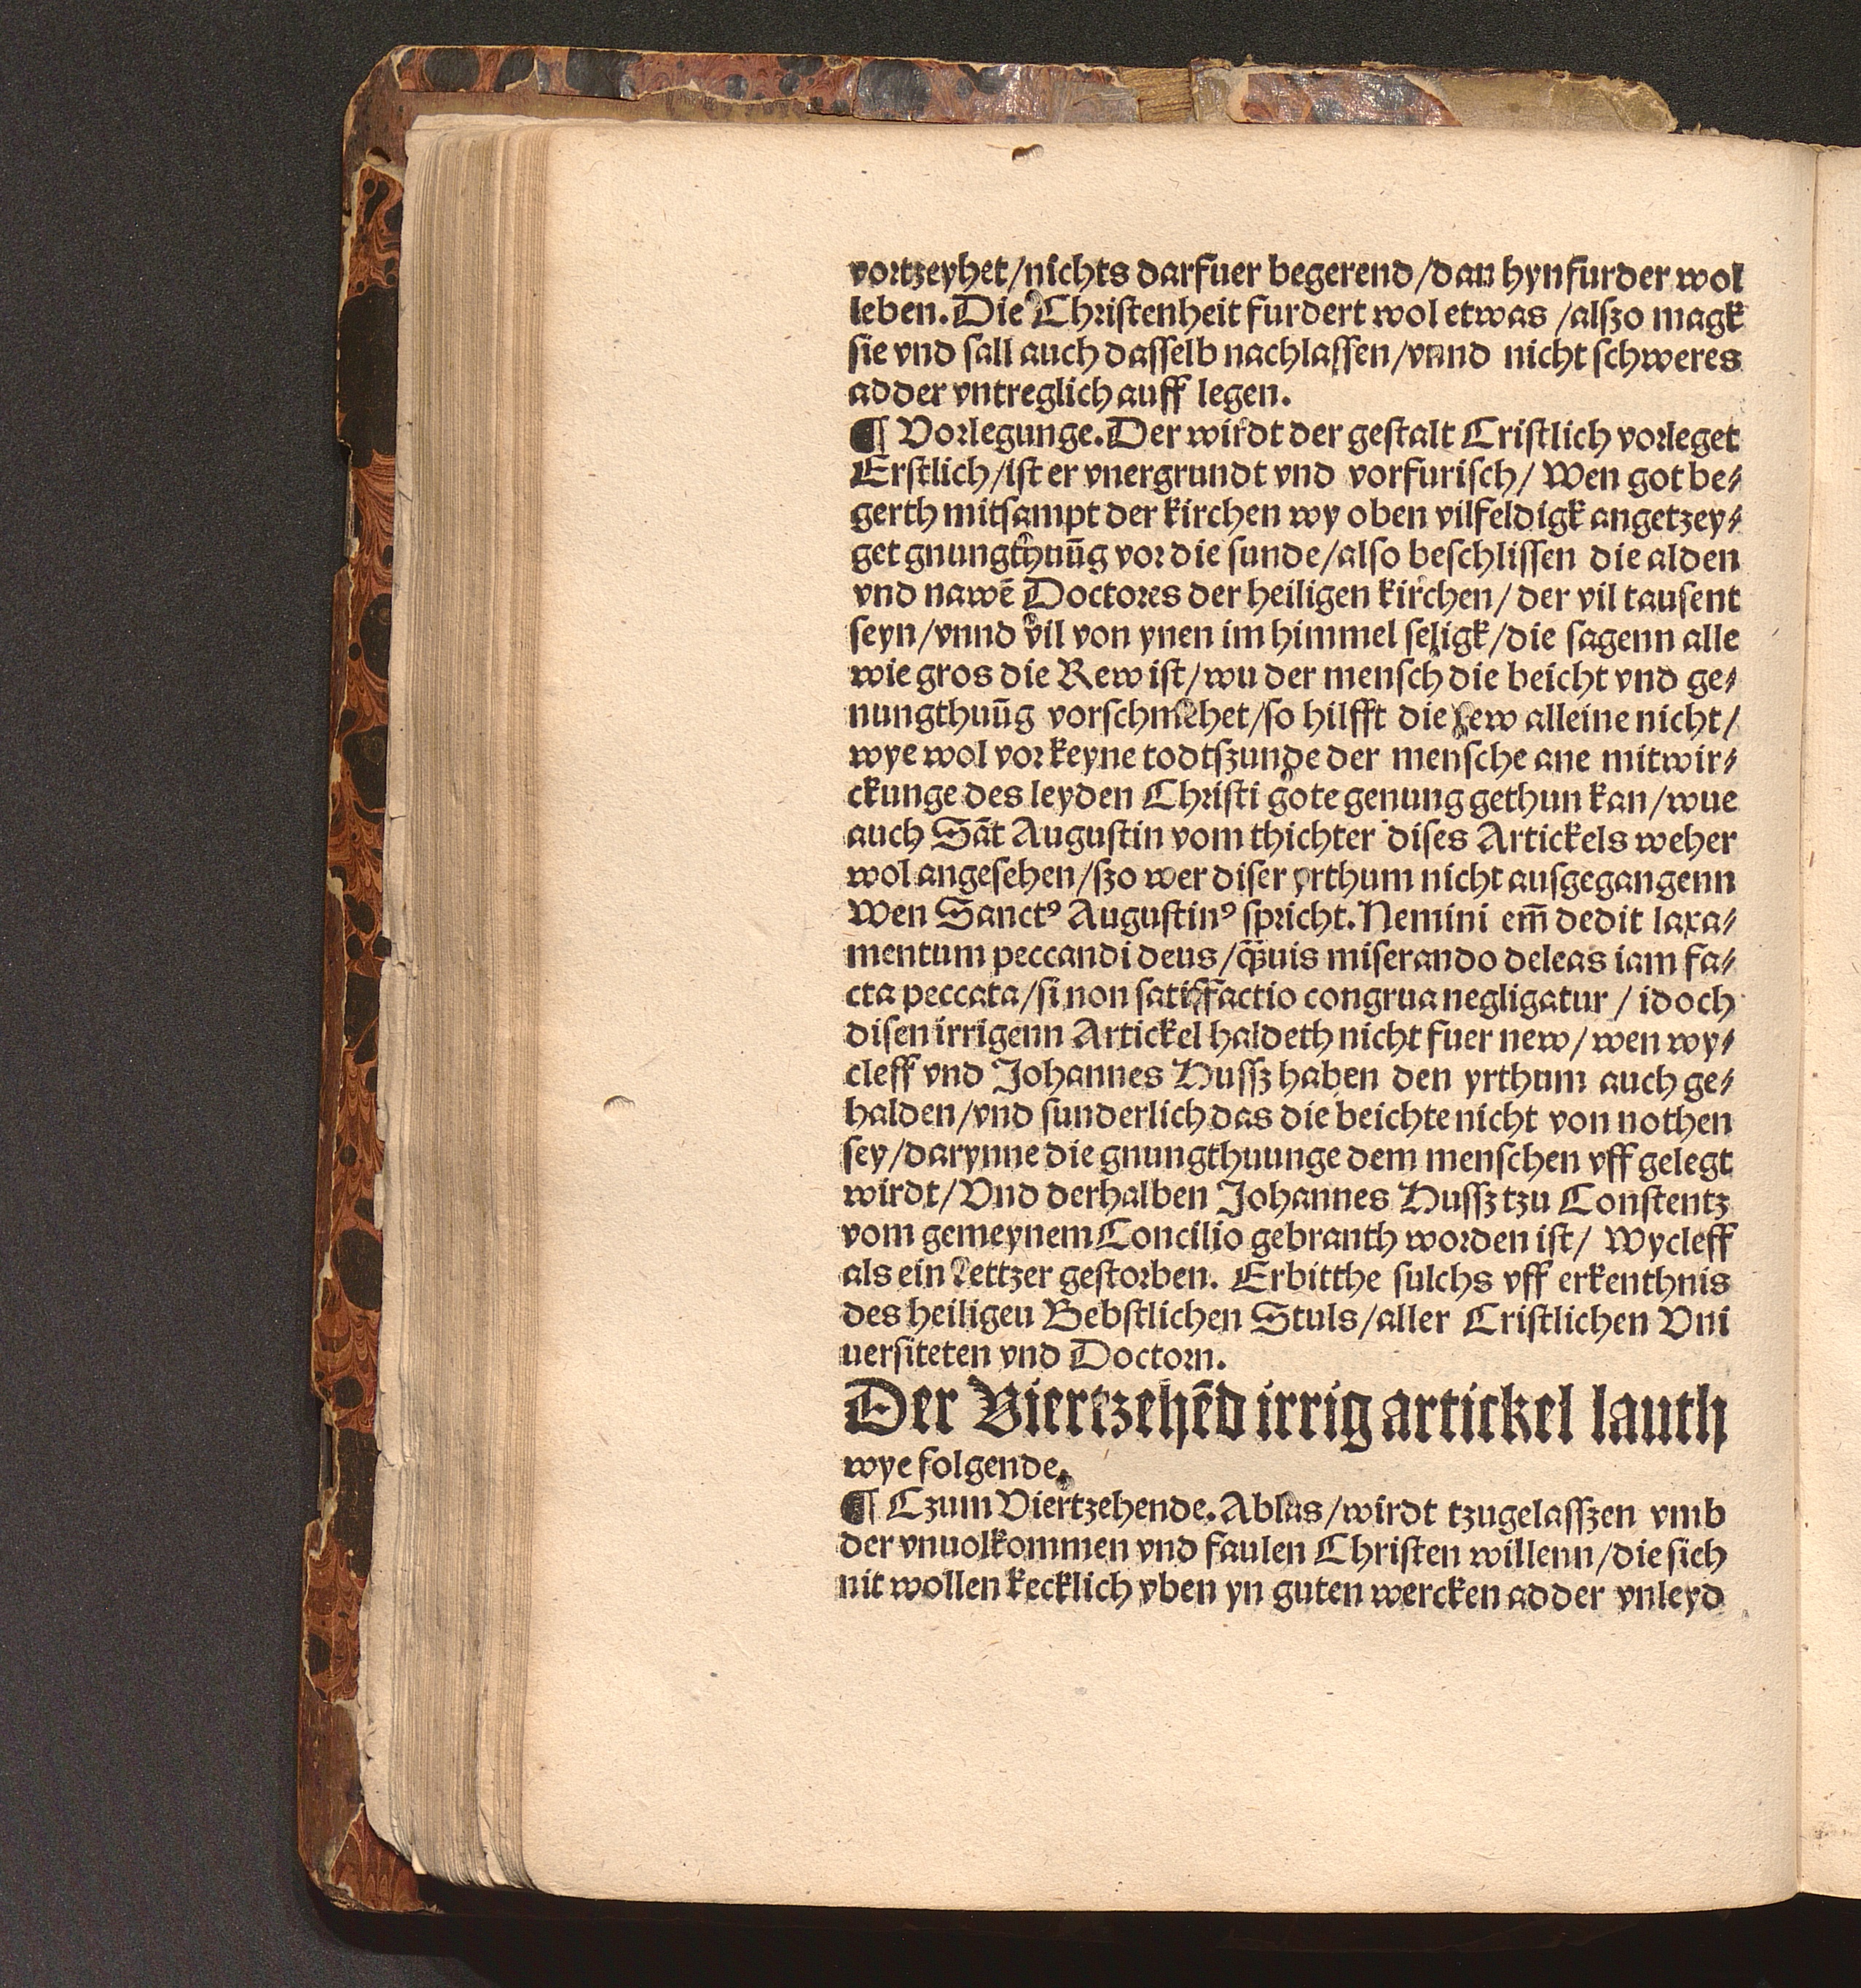 vortzeyhet/nichts darfuer begerend/dan hynfurder wol
leben. Die Christenheit furdert wol etwas /alszo magk
sie vnd sall auch dasselb nachlassen/vnnd nicht schweres
adder vntreglich auff legen.
¶ Vorlegunge. Der wirdt der gestalt Cristlich vorleget
Erstlich/ist er vnergrundt vnd vorfurisch/ Wen got be⸗
gerth mitsampt der kirchen wy oben vilfeldigk angetzey⸗
get gnungthuūg vor die sunde/also beschlissen die alden
vnd nawē Doctores der heiligen kirchen/ der vil tausent
seyn/vnnd vil von ynen im himmel seligk/die sagenn alle
wie gros die Rew ist/wu der mensch die beicht vnd ge⸗
nungthuūg vorschmehet/so hilfft die rew alleine nicht/
wye wol vor keyne todtszunde der mensche ane mitwir⸗
ckunge des leyden Christi gote genung gethun kan/wue
auch Sāt Augustin vom thichter dises Artickels weher
wol angesehen/szo wer diser yrthum nicht ausgegangenn
Wen Sanctꝰ Augustinꝰ spricht. Nemini em̄ dedit laxa⸗
mentum peccandi deus/q̄uis miserando deleas iam fa⸗
cta peccata/si non satisfactio congrua negligatur / idoch
disen irrigenn Artickel haldeth nicht fuer new/ wen wy⸗
cleff vnd Johannes Hussz haben den yrthum auch ge⸗
halden/vnd sunderlich das die beichte nicht von nothen
sey/darynne die gnungthuunge dem menschen vff gelegt
wirdt/Vnd derhalben Johannes Hussz tzu Constentz
vom gemeynem Concilio gebranth worden ist/ Wycleff
als ein kettzer gestorben. Erbitthe sulchs vff erkenthnis
des heiligeu Bebstlichen Stuls/aller Cristlichen Vni
uersiteten vnd Doctorn.
Der Viertzehēd irrig artickel lauth
wye folgende.
¶ Czum Viertzehende. Ablas/wirdt tzugelasszen vmb
der vnuolkommen vnd faulen Christen willenn/die sich
nit wollen kecklich vben yn guten wercken adder vnleyd